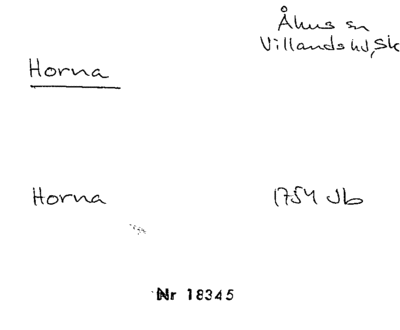 Åhus sn
Villands hd, Sk
Horna
Horna
1754 Jb
Nr 18345